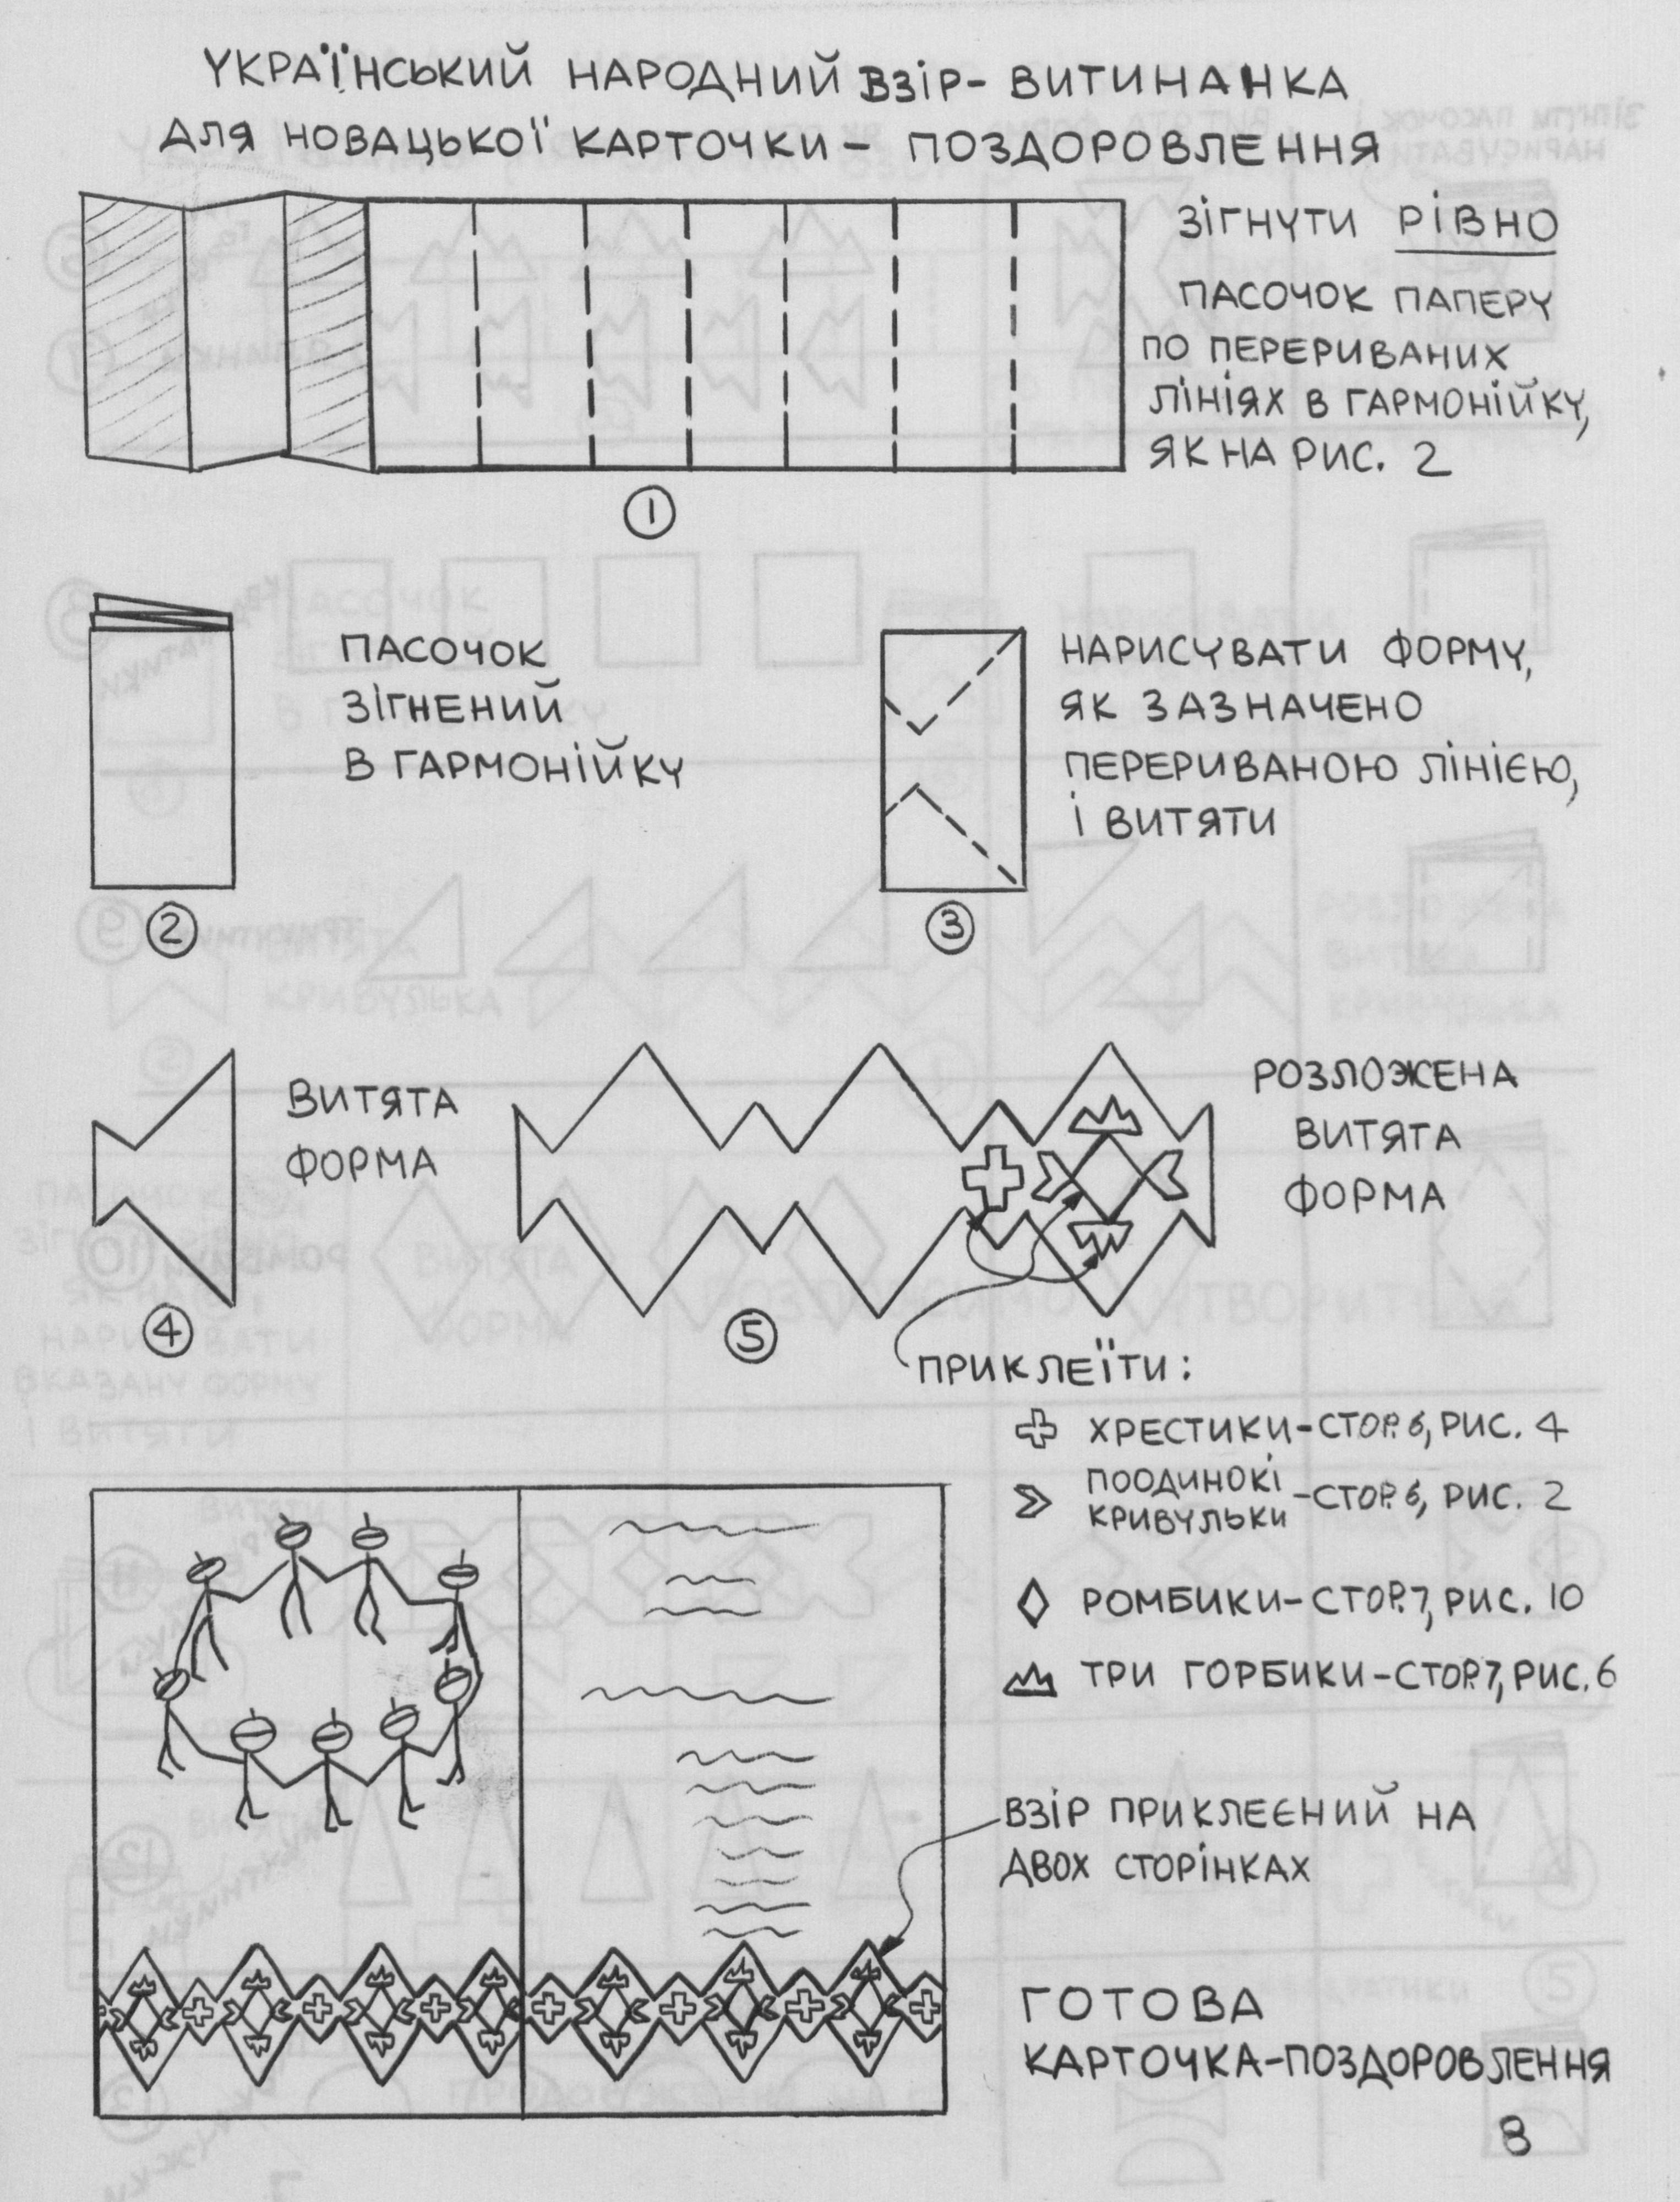 УКРАЇНСЬКИЙ НАРОДНИЙ ВЗІР-ВИТИНАНКА
ДЛЯ НОВАЦЬКОЇ КАРТОЧКИ – ПОЗДОРОВЛЕННЯ
ЗІГНУТИ РІВНО
ПАСОЧОК ПАПЕРУ
ПО ПЕРЕРИВАНИХ
ЛІНІЯХ В ГАРМОНІЙКУ,
ЯК НА РИС. 2
1
ПАСОЧОК
ЗІГНЕНИЙ
В ГАРМОНІЙКУ
2
НАРИСУВАТИ ФОРМУ,
ЯК ЗАЗНАЧЕНО
ПЕРЕРИВАНОЮ ЛІНІЄЮ,
І ВИТЯТИ
3
ВИТЯТА
ФОРМА
4
РОЗЛОЖЕНА
ВИТЯТА
ФОРМА
5
ПРИКЛЕЇТИ:
ХРЕСТИКИ-СТОР. 6, РИС. 4
ПООДИНОКІ
КРИВУЛЬКИ -СТОР. 6, РИС. 2
РОМБИКИ-СТОР. 7, РИС. 10
ТРИ ГОРБИКИ-СТОР. 7, РИС. 6
ВЗІР ПРИКЛЕЄНИЙ НА
ДВОХ СТОРІНКАХ
ГОТОВА
КАРТОЧКА-ПОЗДОРОВЛЕННЯ
8